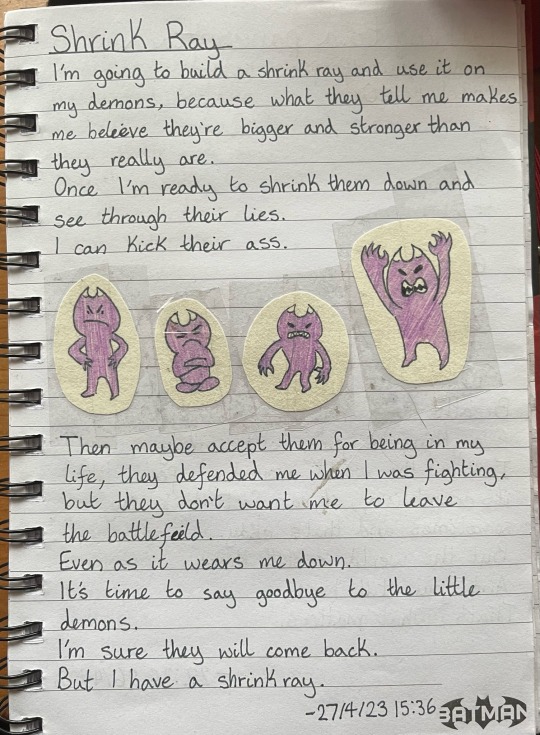 Shrink Ray
I'm going to build a shrink ray and use it on
my demons, because what they tell me makes
me beleeve they're bigger and stronger than
they really are.
Once I'm ready to shrink them down and
see through their lies.
I can kick their ass.
Then maybe accept them for being in my
life, they defended me when I was fighting,
but they don't want me to leave
the battlefeild.
Even as it wears me down.
It's time to say goodbye to the little
demons.
I'm sure they will come back.
But I have a shrink ray.
-27/4/23 15:36
BATMAN